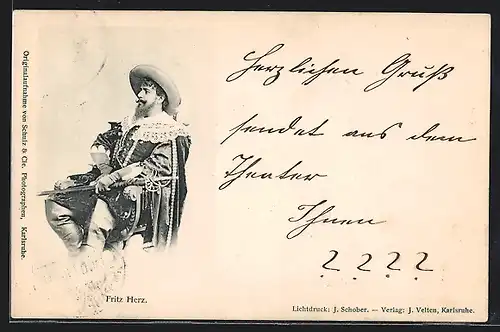 Originalaufnahme von Schulz & Cie. Photographen, Karlsruhe.
Herzlichen Gruß
sendet aus dem
Theater
Ihnen
? ? ? ?
Fritz Herz.
Lichtdruck: J. Schober. — Verlag: J. Velten, Karlsruhe.